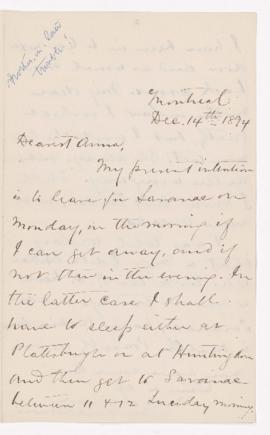 Brother in law
trouble
Montreal
Dec. 14th 1894
Dearest Anna,
My present intention
is to leave for Saranac on
Monday, in the morning if
I can get away, and if
not then in the evening. In
the latter case I shall
have to sleep either at
Plattsburgh or at Huntingdon
and then get to Saranac
between 11 & 12 Tuesday morning.